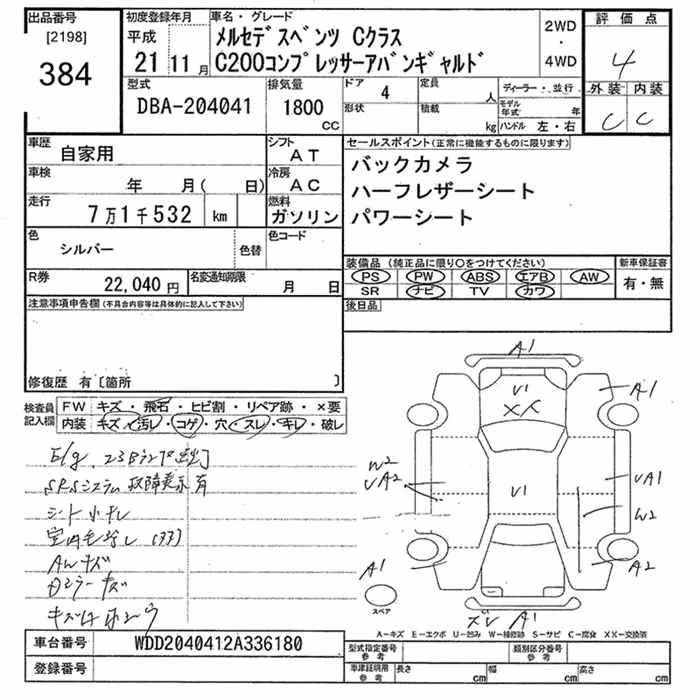 出品番号
[2198]
384
初度登録年月
平成
21 11月
車名・グレード
メルセデスベンツ Cクラス
C200コンプレッサーアバンギャルド
2WD
・
4WD
評価点
4
外装 内装
C C
型式
DBA-204041
排気量
1800
CC
ドア 4
形状
定員
人
積載
kg
ディーラー・並行
モデル年式 年
ハンドル 左・右
車歴
自家用
シフト
AT
車検
年 月( 日)
冷房
AC
走行
7万1千532 km
燃料
ガソリン
色
シルバー
色替
色コード
R券
22,040円
名変通知期限
月 日
注意事項申告欄(不具合内容等は具体的に記入して下さい)
修復歴 有〔箇所 〕
セールスポイント(正常に機能するものに限ります)
バックカメラ
ハーフレザーシート
パワーシート
装備品(純正品に限り○をつけてください)
PS PW ABS エアB AW
SR ナビ TV カワ
新車保証書
有・無
後日品
検査員
記入欄
FW キズ・飛石・ヒビ割・リペア跡・×要
内装 キズ・汚レ・コゲ・穴・スレ・キレ・破レ
SRSシステム故障表示有
AWキズ
A1
V1
XX
A1
W2
UA2
V1
UA1
W2
A1
A2
スペア
A1
A-キズ E-エクボ U-凹み W-補修跡 S-サビ C-腐食 XX-交換済
車台番号 WDD2040412A336180
登録番号
型式指定番号
参考
類別区分番号
参考
車庫証明用
参考
長さ cm 幅 cm 高さ cm